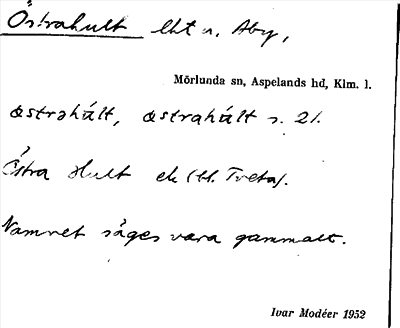 Östrahult lht u. Åby,
Mörlunda sn, Aspelands hd, Klm. l.
östrahúlt, östrahúlt s. 21.
Östra Hult ek (bl. Tveta).
Namnet säges vara gammalt.
Ivar Modéer 1952